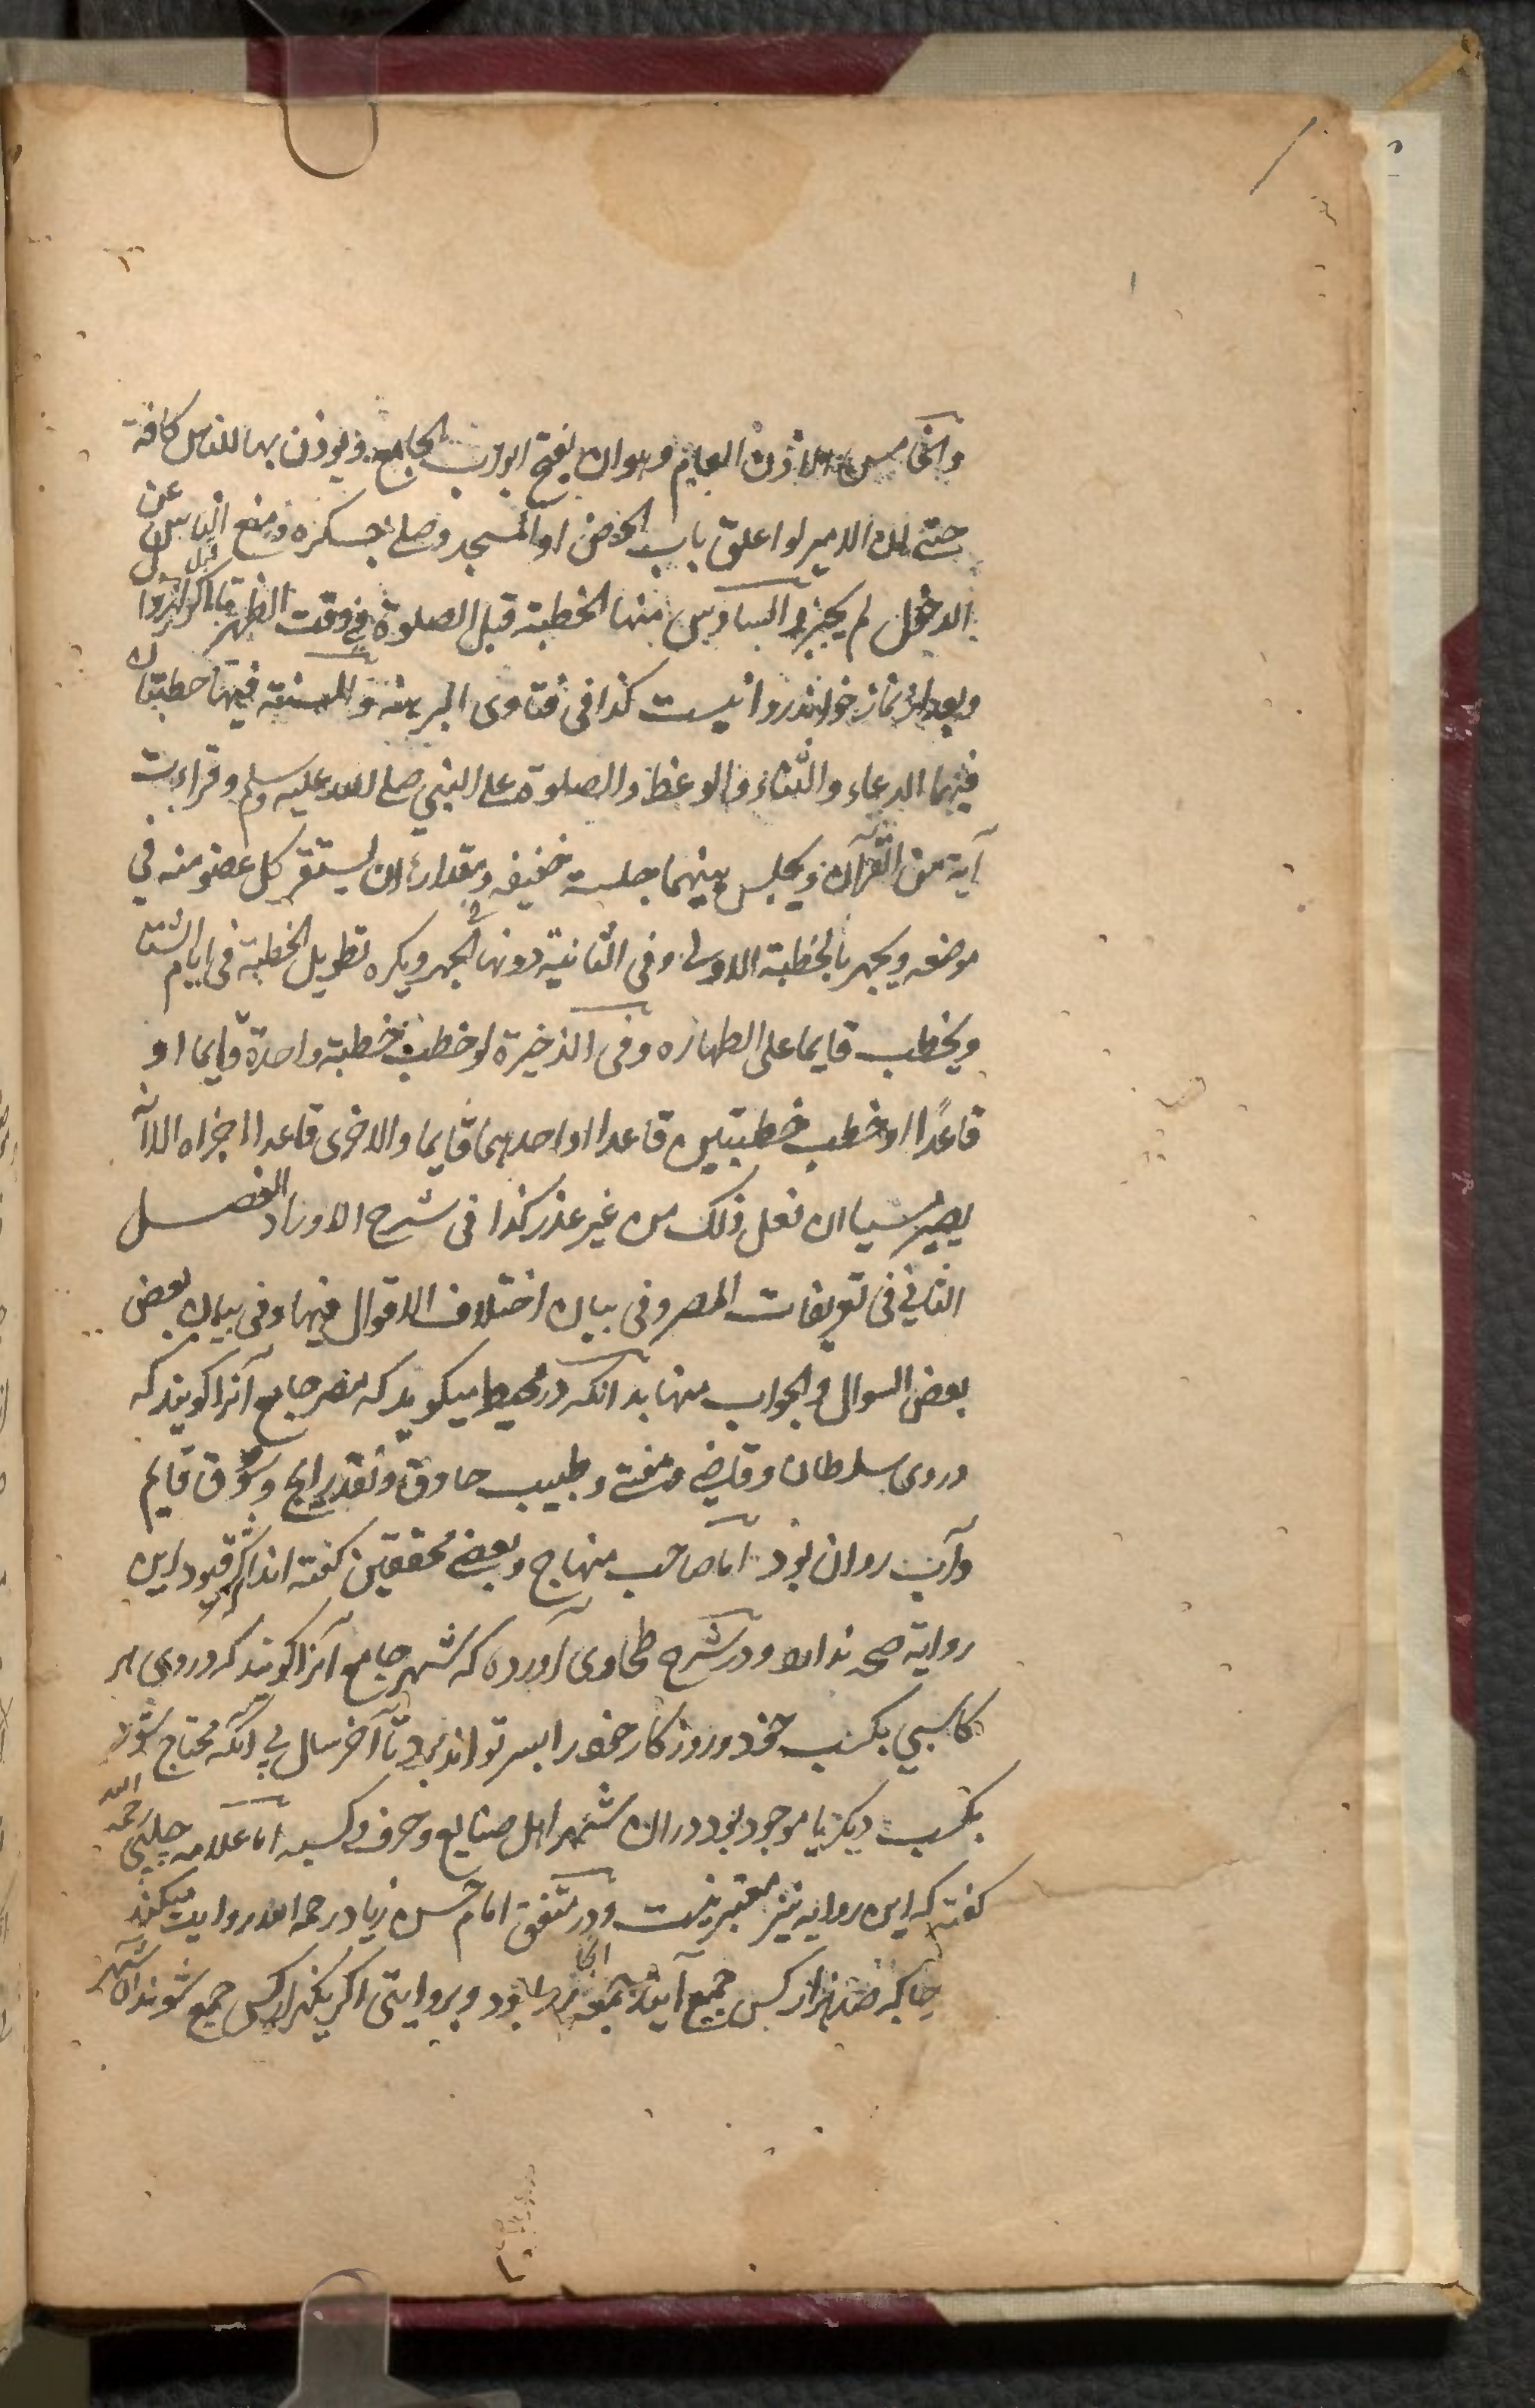 والخامس الاذن العام وهو ان یفتح ابواب الجامع ویوذن بها للناس كافة
حتے ان الامیر لو اغلق باب الحصن او المسجد وصلے بعسكره ومنع الناس عن
الدخول لم یجز والسادس منها الخطبة قبل الصلوة فی وقت الظهر قبل
وبعد از نماز خوانند روا نیست كذا فی فتاوی البرهنه والسنة فیها خطبتان
فیهما الدعاء والثناء والوعظ والصلوة علی النبی صلے الله علیه وسلم وقراءت
آیة من القرآن ویجلس بینهما جلسة خفیفه ومقداره ان یستقر كل عضو منه فی
موضعه ویجهر بالخطبة الاولی وفی الثانیة دونها فی الجهر ویكره تطویل الخطبة فی ایام الشتا
ویخطب قایما علی الطهاره وفی الذخیرة لو خطب خطبة واحدة قایما او
قاعدًا او خطب خطبتین قاعدا او احدیهما قایما والاخری قاعدا اجزاه الا انه
یصیر مسیا ان فعل ذلك من غیر عذر كذا فی شرح الاوراد الفصل
الثانی فی تعریفات المصر وفی بیان اختلاف الاقوال فیها وفی بیان بعض
بعض السوال والجواب منها بدانكه در محیط میكوید كه مصر جامع آنرا كویند كه
در وی سلطان وقاضے ومفتے وطبیب حاذق ونقد رایج وسوق قایم
وآب روان بود اما صاحب منهاج وبعضے محققین كفته اند اكثر قیود این
روایة صحه ندارد ودر شرح طحاوی آورده كه شهر جامع آنرا كویند كه در وی هر
كاسبی بكسب خود وروزكار خود را بسر تواند برد تا آخر سال بی آنكه محتاج شود
بكسب دیكر یا موجود بود در ان شهر اهل صنایع وحرف وكسبه اما علامه چلپی رحمه الله
كفته كه این روایه نیز معتبر نیست ودر متفق امام حسن زیاد رحمه الله روایت میكند
جا كه صد هزار كس جمع آیند جمعه انجا روا بود وبروایتی اكر یكهزار كس جمع شوند ان شهر